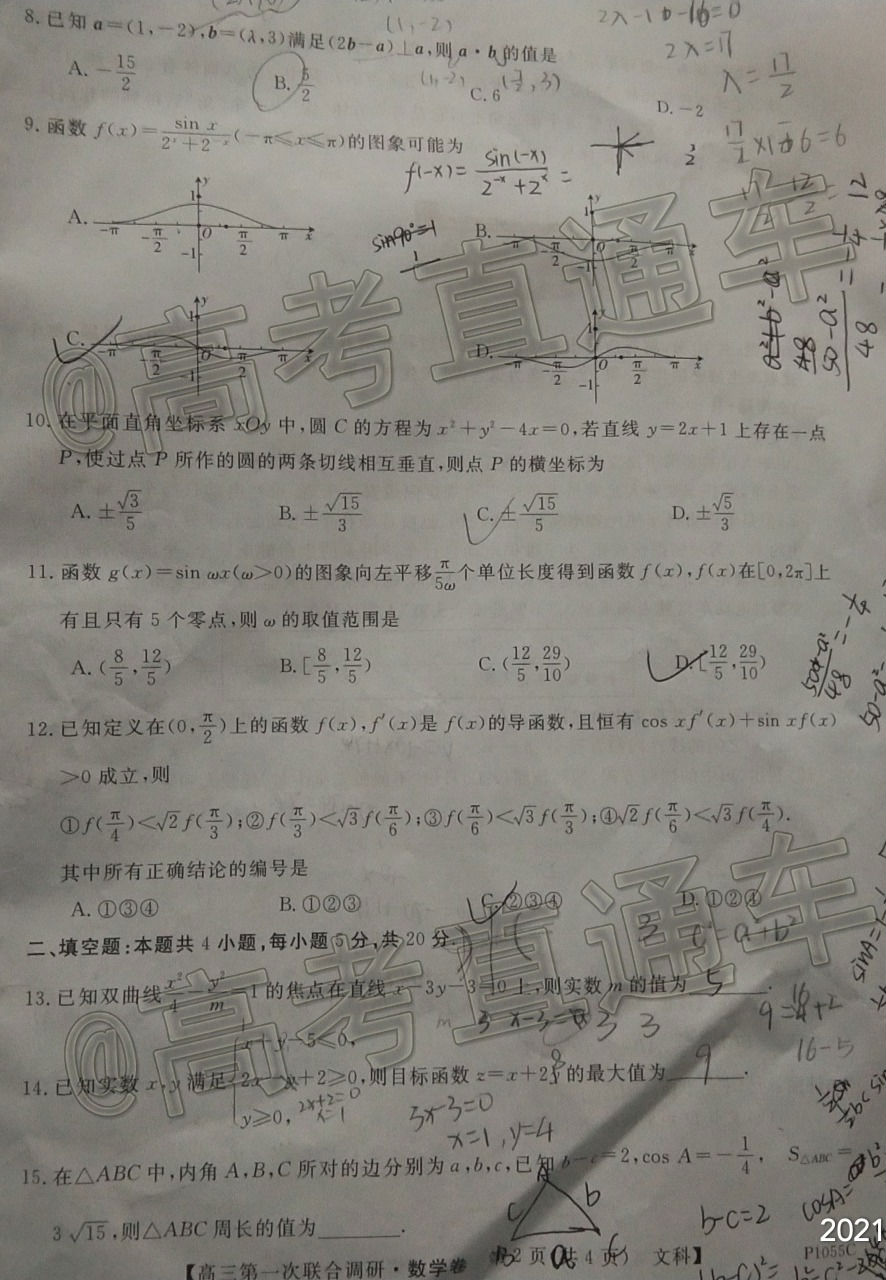 8.已知a=(1,-2),b=(λ,3)满足(2b-a)⊥a,则a·b的值是
A.-15/2 B.5/2 C.6 D.-2
(1,-2)
2λ=17
λ=17/2
9.函数f(x)=sin x/(2^x+2^-x)(-π≤x≤π)的图象可能为
f(-x)=sin(-x)/(2^-x+2^x)=
sin90°=1
A. B.
C. D.
10.在平面直角坐标系xOy中,圆C的方程为x²+y²-4x=0,若直线y=2x+1上存在一点
P,使过点P所作的圆的两条切线相互垂直,则点P的横坐标为
A.±√3/5 B.±√15/3 C.±√15/5 D.±√5/3
11.函数g(x)=sin ωx(ω>0)的图象向左平移π/5ω个单位长度得到函数f(x),f(x)在[0,2π]上
有且只有5个零点,则ω的取值范围是
A.(8/5,12/5) B.[8/5,12/5) C.(12/5,29/10) D.[12/5,29/10)
12.已知定义在(0,π/2)上的函数f(x),f′(x)是f(x)的导函数,且恒有cos xf′(x)+sin xf(x)
>0成立,则
①f(π/4)<√2f(π/3);②f(π/3)<√3f(π/6);③f(π/6)<√3f(π/3);④√2f(π/6)<√3f(π/4).
其中所有正确结论的编号是
A.①③④ B.①②③ C.②③④ D.①②④
二、填空题:本题共4小题,每小题5分,共20分.
c²=a²+b²
13.已知双曲线x²/4-y²/m=1的焦点在直线x-3y-3=0上,则实数m的值为5.
x-3=0
9=4+2
16-5
x+y-5≤0,
14.已知实数x,y满足 ,则目标函数z=x+2y的最大值为9.
y≥0,
2x+2=0
3x-3=0
x=1,y=4
15.在△ABC中,内角A,B,C所对的边分别为a,b,c,已知b-c=2,cos A=-1/4, S△ABC=
3√15,则△ABC周长的值为.
b-c=2
【高三第一次联合调研·数学卷 第2页(共4页) 文科】
P1055C
@高考直通车
@高考直通车
2021